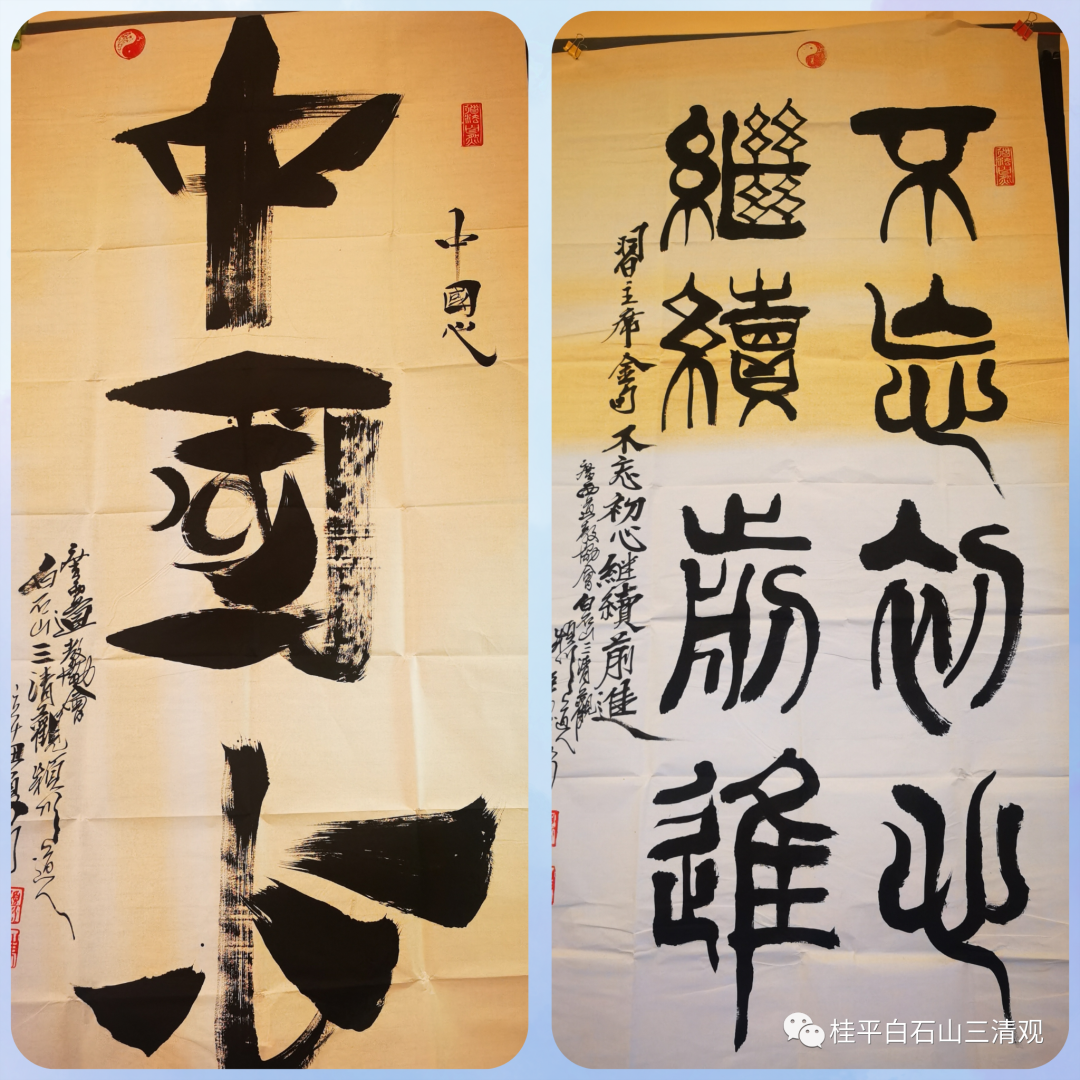 中國心
中國心
廣西道教協會
白石山三清觀
道人
不忘初心
繼續前進
習主席金句 不忘初心繼續前進
廣西道教協會白石山三清觀
道人
桂平白石山三清观